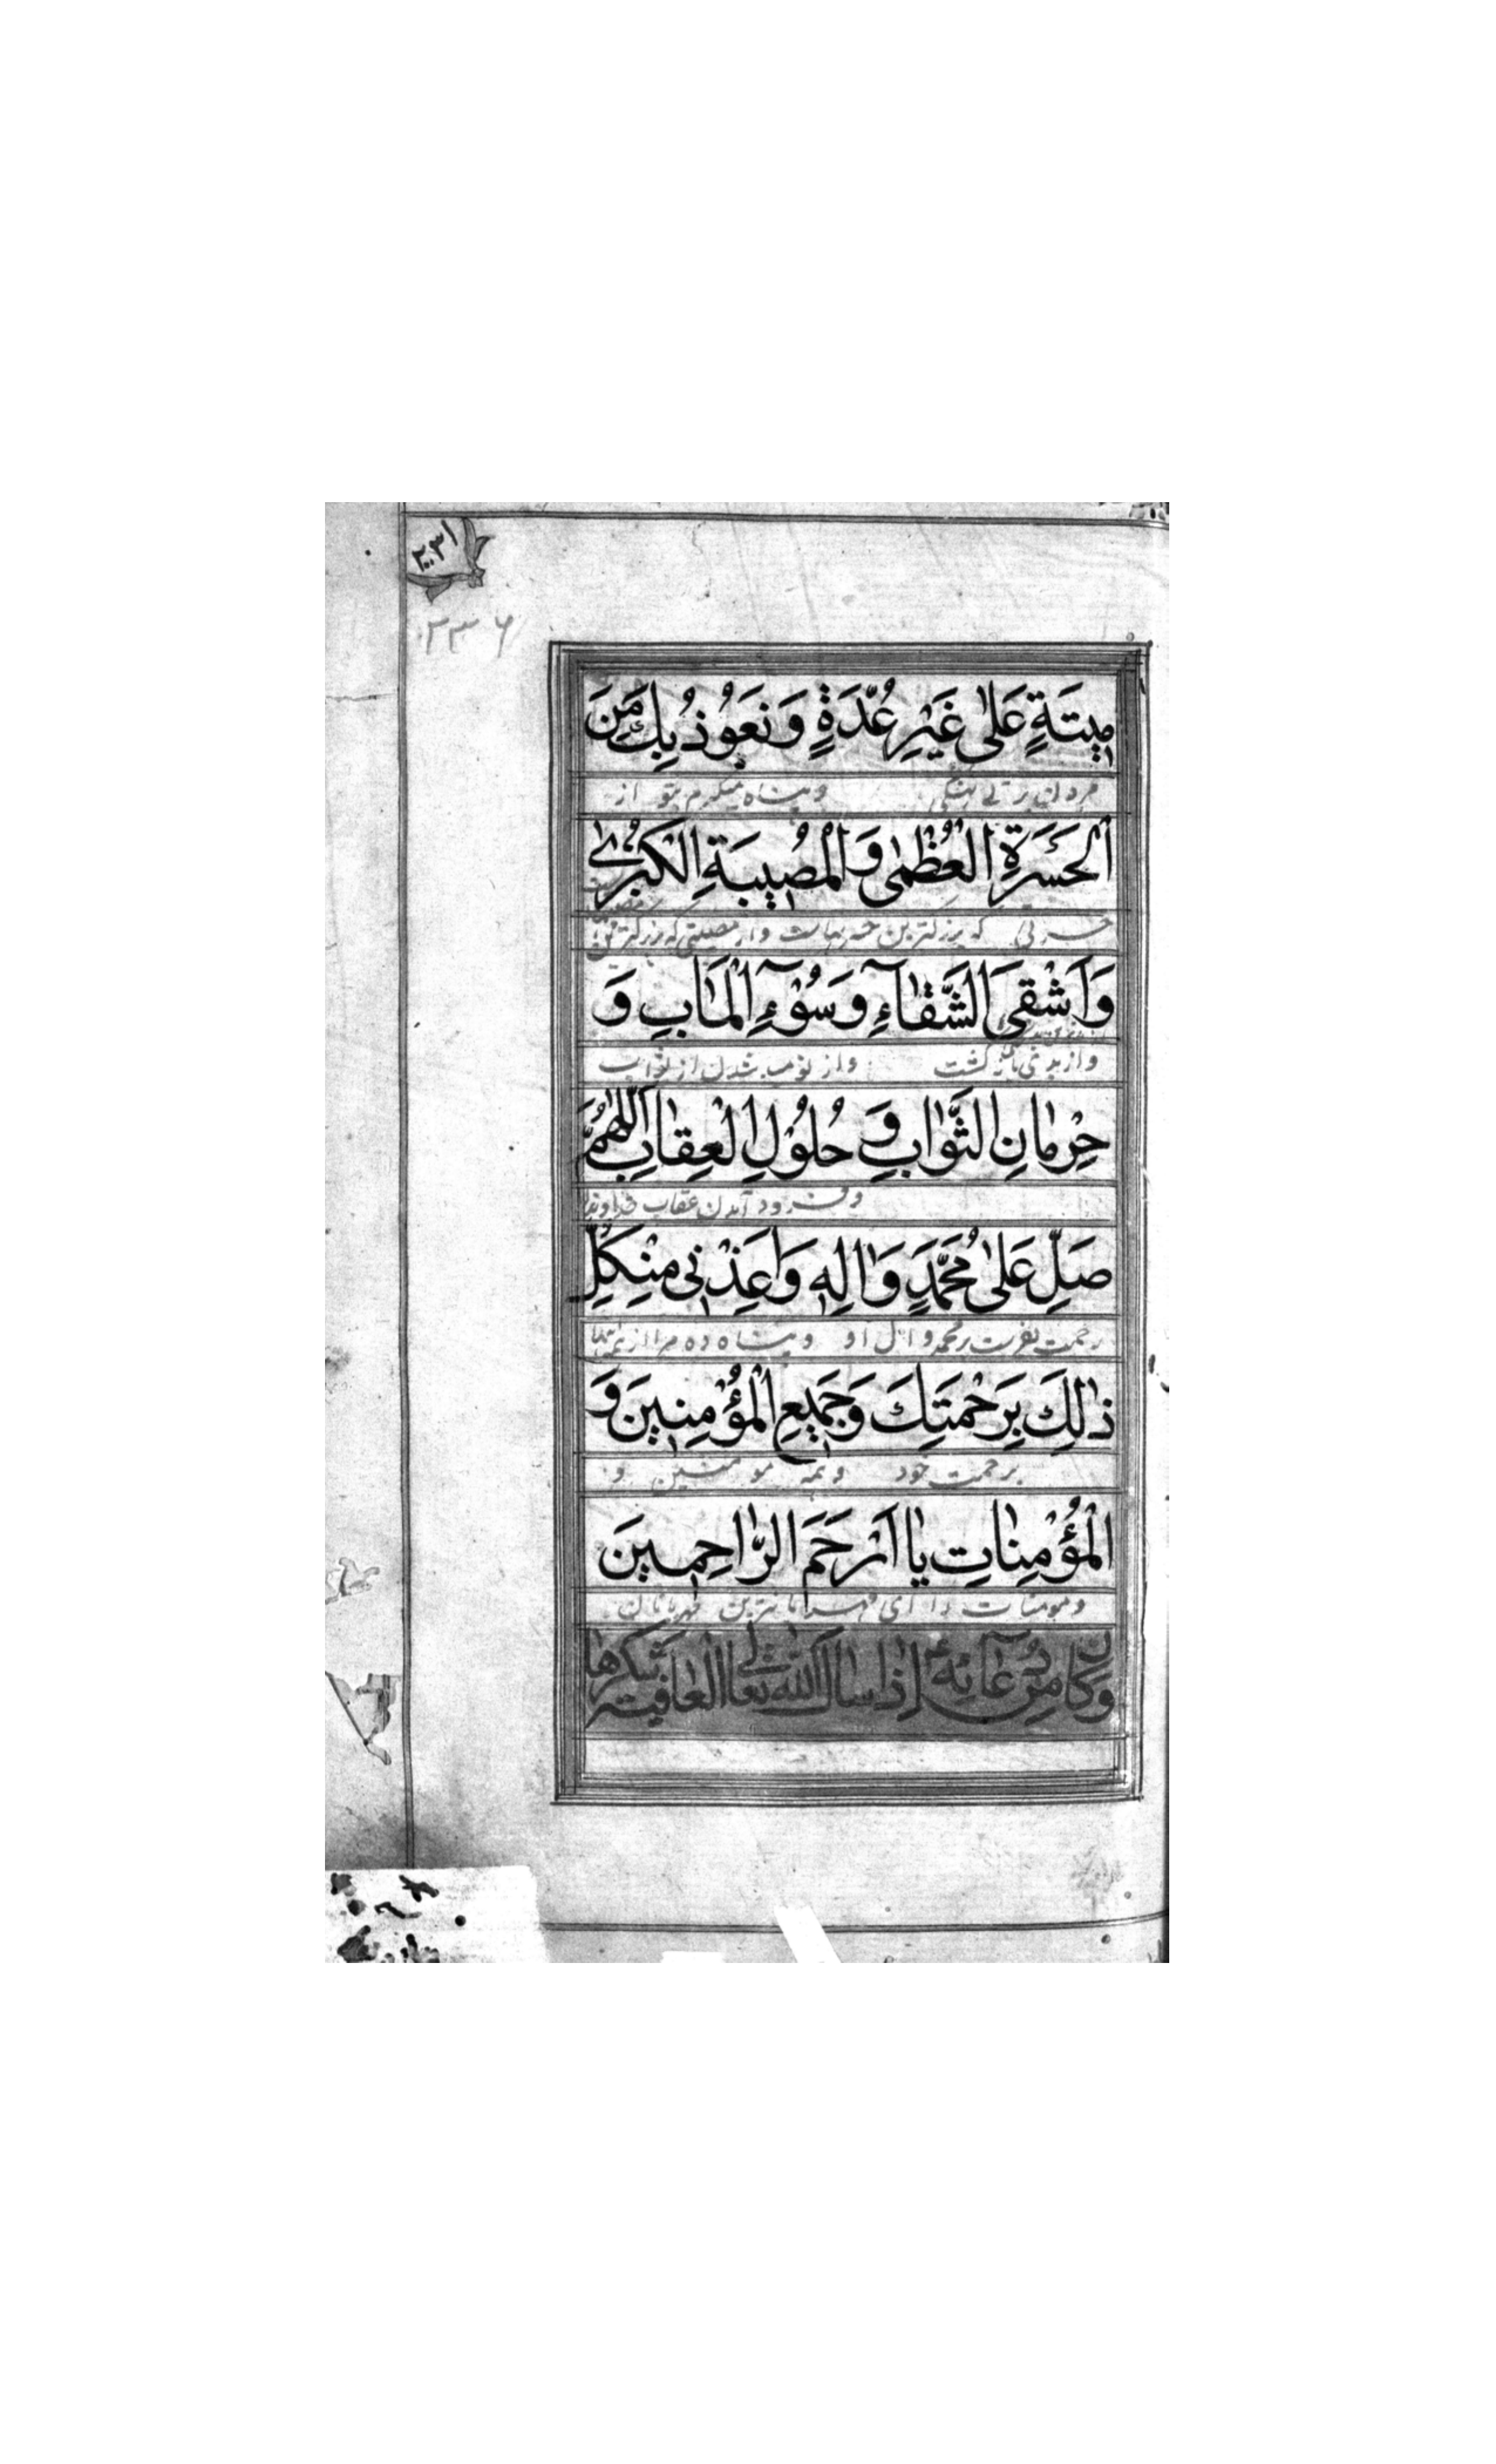 ۲۰۳۱
۲۳۶
مِيتَةٍ عَلىٰ غَيْرِ عُدَّةٍ وَنَعُوذُ بِكَ مِنَ
وپناه میگیرم بتو از
اَلْحَسْرَةِ الْعُظْمىٰ وَالْمُصِيبَةِ الْكُبْرىٰ
که بزرگترین حسرتهاست واز مصیبتی که بزرگترین
وَاَشْقَى الشَّقٰآءِ وَسُوۤءِ الْمَاٰبِ وَ
واز بدی بازگشت واز نومید شدن از ثواب
حِرْمٰانِ الثَّوٰابِ وَ حُلُولِ الْعِقٰابِ اَللّٰهُمَّ
وفرود آمدن عقاب خداوندا
صَلِّ عَلىٰ مُحَمَّدٍ وَاٰلِهِ وَاَعِذْنِى مِنْ كُلِّ
رحمت بفرست بر محمد و آل او وپناه ده مرا از همه
ذٰلِكَ بِرَحْمَتِكَ وَجَمِيعِ الْمُؤْمِنِينَ وَ
برحمت خود وهمه مومنین و
الْمُؤْمِنٰاتِ يٰا اَرْحَمَ الرّٰاحِمِينَ
ومومنات را ای مهربانترین مهربانان
وَكٰانَ مِنْ دُعٰآئِهِ ع اِذٰا سَاَلَ اللّٰهَ تَعٰالىٰ الْعٰافِيَةَ وَشُكْرَهٰا